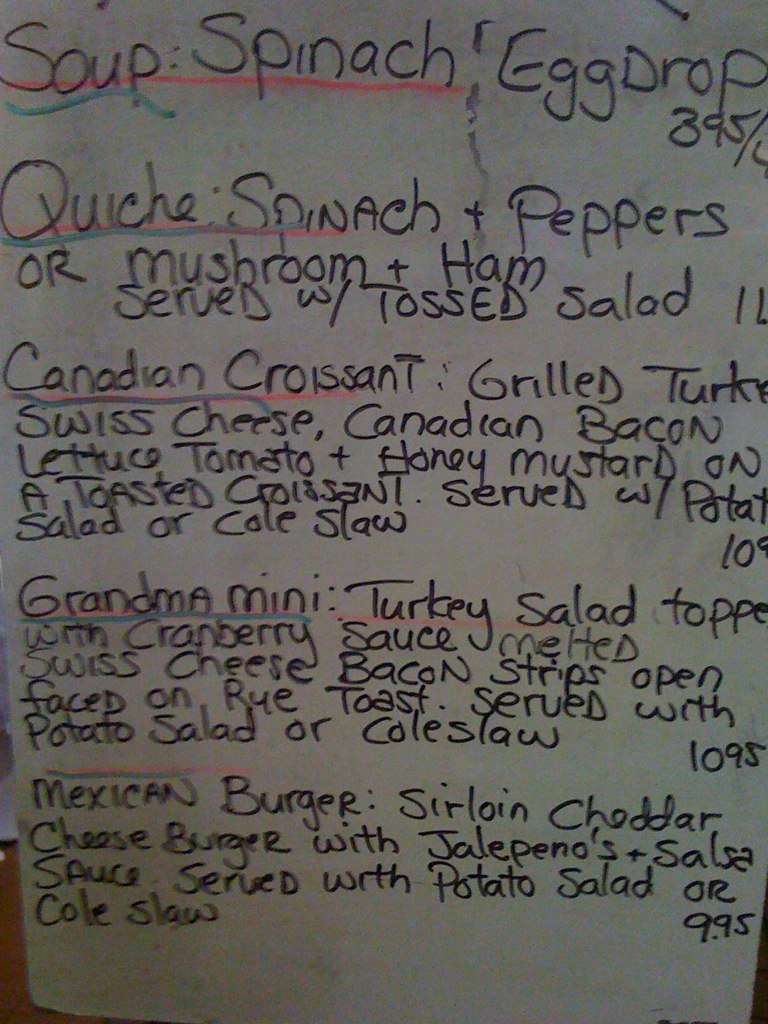 Soup: Spinach EggDrop
395/
Quiche: Spinach + Peppers
OR mushroom + Ham
Served w/ Tossed Salad 11
Canadian Croissant: Grilled Turke
Swiss Cheese, Canadian Bacon
Lettuce Tomato + Honey mustard on
A Toasted Croissant. Served w/ Potat
Salad or Cole Slaw
109
Grandma mini: Turkey Salad toppe
with Cranberry Sauce melted
Swiss Cheese Bacon Strips open
faced on Rye Toast. Served with
Potato Salad or Coleslaw
1095
Mexican Burger: Sirloin Cheddar
Cheese Burger with Jalepeno's + Salsa
Sauce. Served with Potato Salad OR
Cole Slaw
9.95